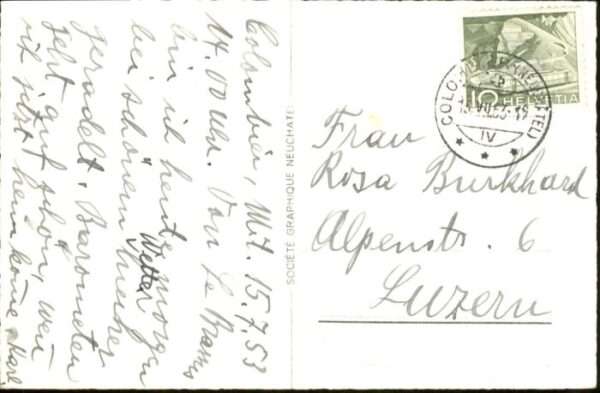 Colombier, Mit. 15.7.53
14.00 Uhr. Von Le Brassus
bin ich heute morgen
bei schönem Wetter hieher
geradelt. Barometer
gut schon,
heim kome Karl
SOCIÉTÉ GRAPHIQUE NEUCHATEL
10 HELVETIA
COLOMBIER (NEUCHÂTEL)
VII.53
IV
Frau
Rosa Burkhard
Alpenstr. 6
Luzern